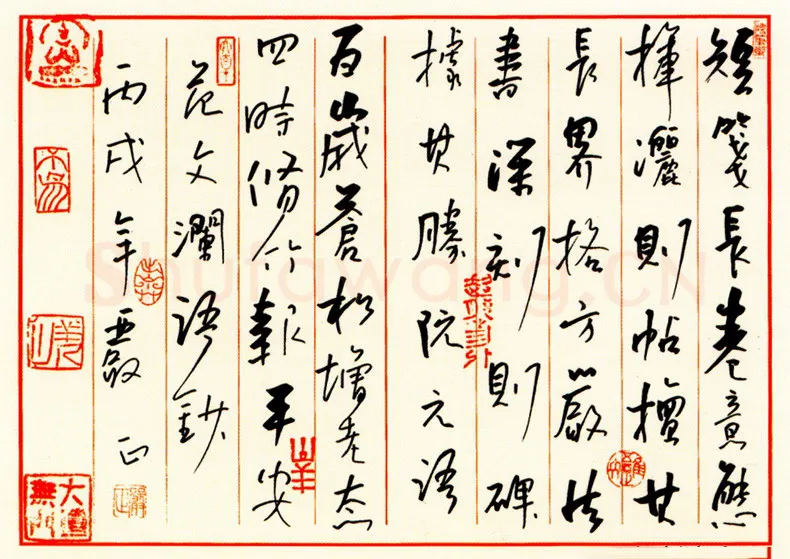 短箋長卷意態
揮灑則帖擅其
長界格方嚴法
書深刻則碑
據其勝阮元語
百歲蒼松增老态
四時脩竹報平安
范文瀾語鈔
丙戌年 正
大道無門
Shufawang.CN